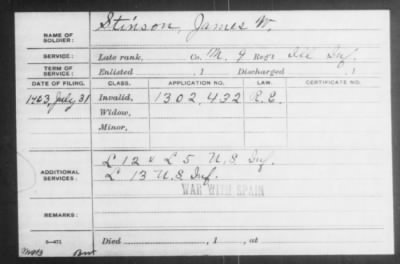 NAME OF SOLDIER: Stinson, James W.
SERVICE: Late rank, Co. M. 9 Reg't Ill Inf.
TERM OF SERVICE: Enlisted , 1 Discharged , 1
DATE OF FILING. CLASS. APPLICATION NO. LAW. CERTIFICATE NO.
1903, July 31 Invalid, 1302,432
Widow,
Minor,
ADDITIONAL SERVICES: L 12 & L 5 U.S Inf.
L 13 U.S Inf.
WAR WITH SPAIN
REMARKS:
Died , 1 , at